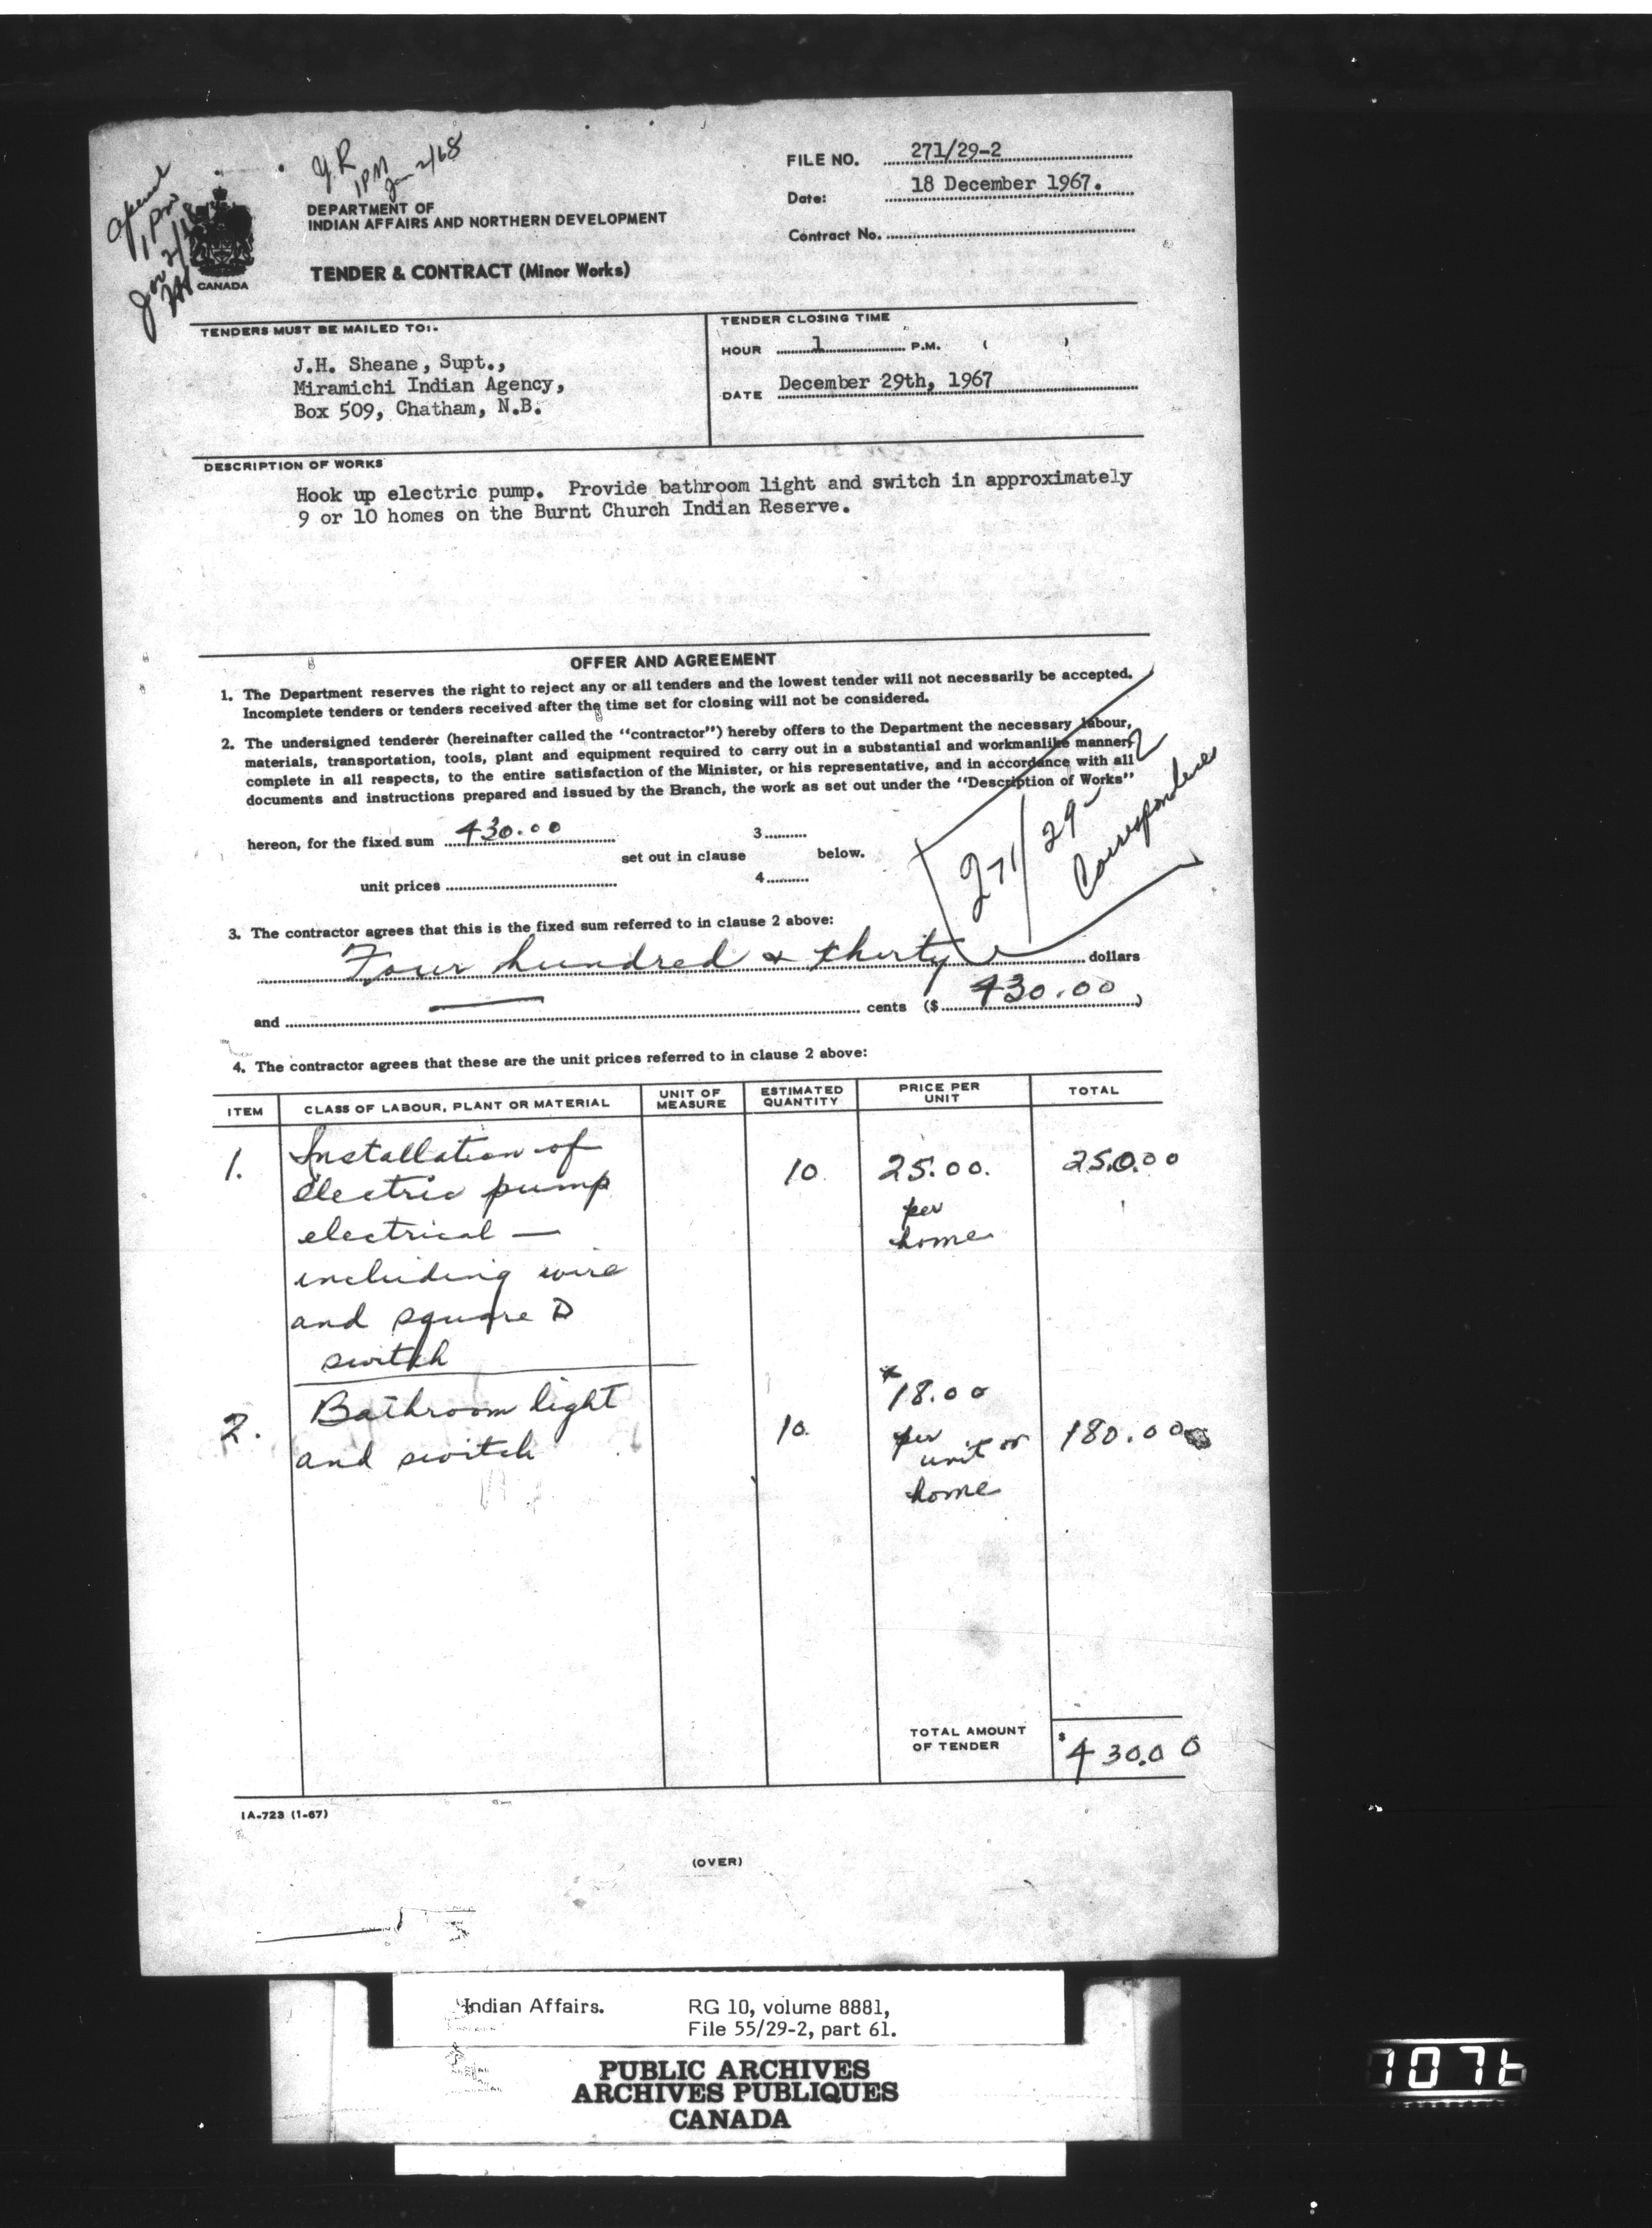 opened
1 PM
Jan 2/68
Y.R
1 PM
Jan 2/68
CANADA
DEPARTMENT OF
INDIAN AFFAIRS AND NORTHERN DEVELOPMENT
TENDER & CONTRACT (Minor Works)
FILE NO. 271/29-2
Date: 18 December 1967.
Contract No.
TENDERS MUST BE MAILED TO:-
J.H. Sheane, Supt.,
Miramichi Indian Agency,
Box 509, Chatham, N.B.
TENDER CLOSING TIME
HOUR 1 P.M. ( )
DATE December 29th, 1967
DESCRIPTION OF WORKS
Hook up electric pump. Provide bathroom light and switch in approximately
9 or 10 homes on the Burnt Church Indian Reserve.
OFFER AND AGREEMENT
1. The Department reserves the right to reject any or all tenders and the lowest tender will not necessarily be accepted.
Incomplete tenders or tenders received after the time set for closing will not be considered.
2. The undersigned tenderer (hereinafter called the "contractor") hereby offers to the Department the necessary labour,
materials, transportation, tools, plant and equipment required to carry out in a substantial and workmanlike manner,
complete in all respects, to the entire satisfaction of the Minister, or his representative, and in accordance with all
documents and instructions prepared and issued by the Branch, the work as set out under the "Description of Works"
hereon, for the fixed sum 430.00
set out in clause 3 below.
unit prices 4
271/29-2
Correspondence
3. The contractor agrees that this is the fixed sum referred to in clause 2 above:
Four hundred & thirty dollars
and — cents ($ 430.00 )
4. The contractor agrees that these are the unit prices referred to in clause 2 above:
ITEM CLASS OF LABOUR, PLANT OR MATERIAL UNIT OF MEASURE ESTIMATED QUANTITY PRICE PER UNIT TOTAL
1. Installation of 10 25.00. 250.00
electric pump per
electrical — home
including wire
and square D
switch
2. Bathroom light 10. 18.00 180.00
and switch per
unit or
home
TOTAL AMOUNT
OF TENDER $430.00
IA-723 (1-67)
(OVER)
Indian Affairs. RG 10, volume 8881,
File 55/29-2, part 61.
PUBLIC ARCHIVES
ARCHIVES PUBLIQUES
CANADA
1076